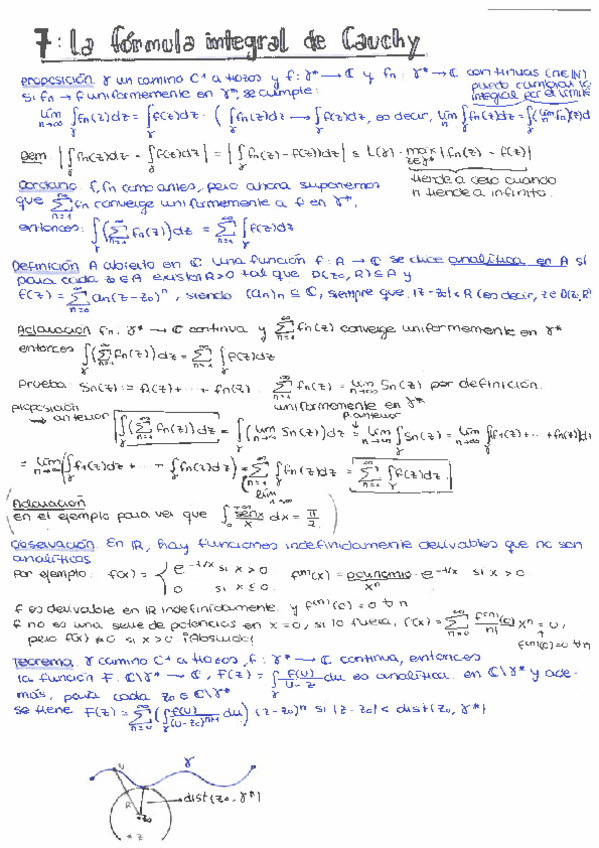 7: La fórmula integral de Cauchy
proposición. γ un camino C¹ a trozos y f: γ* → ℂ y fn: γ* → ℂ continuas (n∈ℕ)
si fn → f uniformemente en γ*, se cumple:
puedo cambiar la integral por el límite
lim n→∞ ∫γ fn(z)dz = ∫γ f(z)dz. (∫γ fn(z)dz → ∫γ f(z)dz, es decir, lim n→∞ ∫γ fn(z)dz = ∫γ (lim n→∞ fn)(z)d
Dem. |∫γ fn(z)dz - ∫γ f(z)dz| = |∫γ fn(z) - f(z))dz| ≤ L(γ) · max z∈γ* |fn(z) - f(z)|
tiende a cero cuando
n tiende a infinito.
corolario. f, fn como antes, pero ahora suponemos
que ∑ n=1 ∞ fn converge uniformemente a f en γ*,
entonces: ∫γ (∑ n=1 ∞ fn(z)) dz = ∑ n=1 ∞ ∫γ f(z)dz
Definición A abierto en ℂ. Una función f: A → ℂ se dice analítica en A si
para cada z0∈A existe R>0 tal que D(z0, R) ⊆ A y
f(z) = ∑ n=0 ∞ an(z-z0)ⁿ, siendo (an)n ⊆ ℂ, siempre que |z-z0|<R (es decir, z∈D(z0,R)
Aclaración fn: γ* → ℂ continua y ∑ n=1 ∞ fn(z) converge uniformemente en γ*
entonces ∫γ (∑ n=1 ∞ fn(z)) dz = ∑ n=1 ∞ ∫γ f(z)dz
Prueba: Sn(z) := f1(z) + ... + fn(z). ∑ n=1 ∞ fn(z) = lim n→∞ Sn(z) por definición.
uniformemente en γ*
proposición
→ anterior ∫γ (∑ n=1 ∞ fn(z)) dz = ∫γ (lim n→∞ Sn(z)) dz = lim n→∞ ∫γ Sn(z) = lim n→∞ ∫γ (f1(z) + ... + fn(z))d
p. anterior
= lim n→∞ (∫γ f1(z)dz + ... + ∫γ fn(z)dz) = ∑ n=1 ∞ ∫γ fn(z)dz = ∑ n=1 ∞ ∫γ f(z)dz.
Aclaración
lim
en el ejemplo para ver que ∫ 0 +∞ senx/x dx = π/2
Observación. En ℝ, hay funciones indefinidamente derivables que no son
analíticas
Por ejemplo: f(x) = { e^(-1/x) si x > 0
0 si x ≤ 0
f⁽ⁿ⁾(x) = polinomio/xⁿ · e^(-1/x) si x > 0
f es derivable en ℝ indefinidamente y f⁽ⁿ⁾(0) = 0 ∀n
f no es una serie de potencias en x=0, si lo fuera, f(x) = ∑ n=0 ∞ f⁽ⁿ⁾(0)/n! xⁿ = 0,
pero f(x) ≠ 0 si x > 0. ¡Absurdo!
f⁽ⁿ⁾(0)=0 ∀n
Teorema. γ camino C¹ a trozos, f: γ* → ℂ continua, entonces
la función F: ℂ\γ* → ℂ, F(z) = ∫γ f(u)/(u-z) du es analítica en ℂ\γ* y ade-
más, para cada z0∈ℂ\γ*
se tiene F(z) = ∑ n=0 ∞ (∫γ f(u)/(u-z0)ⁿ⁺¹ du) (z-z0)ⁿ si |z-z0| < dist(z0, γ*)
u
γ
R
dist(z0, γ*)
z0
z